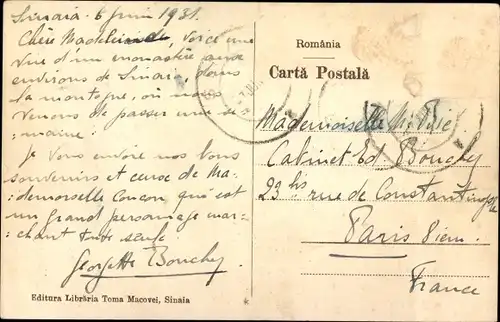 Sinaia, 6 Juin 1931.
Chère Madeleine, Voici une
vue d'un monastère aux
environs de Sinaia, dans
la montagne, où nous
venons de passer une se
maine.
Je Vous envoie nos bons
souvenirs et ceux de Ma
demoiselle Coucou, qui est
un grand personnage mar
chant toute seule
Georgette Bouchy
Editura Librăria Toma Macovei, Sinaia
România
Cartă Postală
Mademoiselle M.
Cabinet Ed. Bouchy
23 bis rue de Constantinople
Paris 8ièm.
France